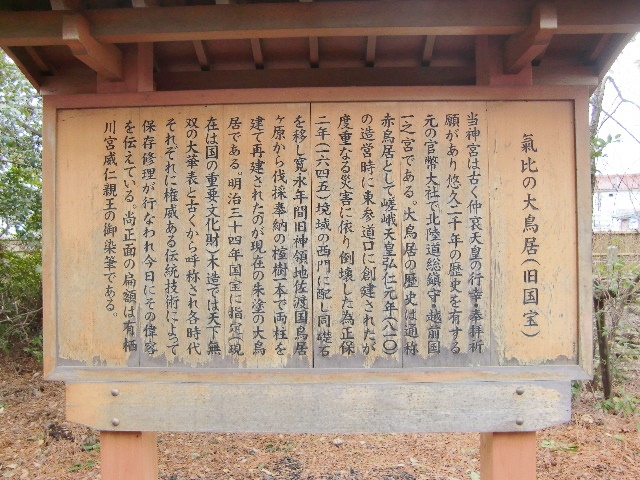 氣比の大鳥居（旧国宝）
当神宮は古く仲哀天皇の行幸、奉拝祈
願があり悠久二千年の歴史を有する
元の官幣大社で北陸道総鎮守、越前国
一之宮である。大鳥居の歴史は通称
赤鳥居として嵯峨天皇弘仁元年（八一〇）
の造営時に東参道口に創建されたが
度重なる災害に依り倒壊した為正保
二年（一六四五）境域の西門に配し同礎石
を移し寛永年間旧神領地佐渡国鳥居
ヶ原から伐採奉納の榁樹一本で両柱を
建て再建されたのが現在の朱塗の大鳥
居である。明治三十四年国宝に指定（現
在は国の重要文化財）木造では天下無
双の大華表と古くから呼称され各時代
それぞれに権威ある伝統技術によって
保存修理が行なわれ今日にその偉容
を伝えている。尚正面の扁額は有栖
川宮威仁親王の御染筆である。